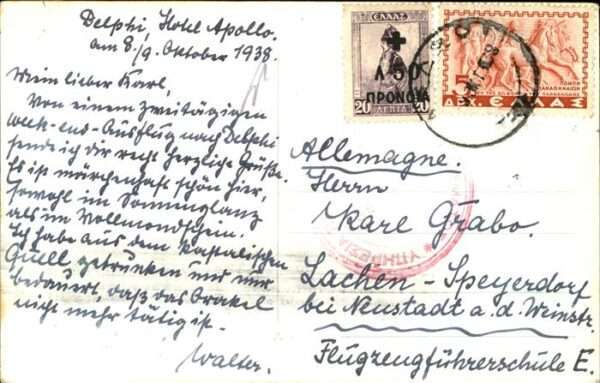 Delphi, Hotel Apollo.
am 8./9. Oktober 1938.
Mein lieber Karl,
Von einem zweitägigen
week-end-Ausflug nach Delphi
sende ich dir recht herzliche Grüße.
Es ist märchenhaft schön hier,
sowohl im Sonnenglanz
als im Vollmondschein.
Ich habe aus dem kastalischen
Quell getrunken und nur
bedauert, daß das Orakel
nicht mehr tätig ist.
Walter.
ΕΛΛΑΣ
Λ.50
ΠΡΟΝΟΙΑ
20 ΛΕΠΤΑ 20
5
ΔΡΧ. ΕΛΛΑΣ
ΠΟΜΠΗ
ΠΑΝΑΘΗΝΑΙΩΝ
ΥΠΗΡΕΣΙΑ
Allemagne.
Herrn
Karl Grabo.
Lachen-Speyerdorf
bei Neustadt a. d. Weinstr.
Flugzeugführerschule E.